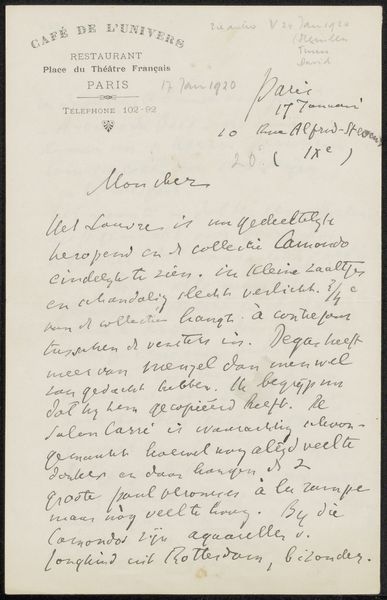 CAFÉ DE L'UNIVERS
RESTAURANT
Place du Théâtre Français
PARIS
TÉLÉPHONE 102-92
17 Jan 1920
V 24 Jan 1920
David
Paris
17 Januari
10 Rue Alfred Stevens
(IXe)
Mon cher
Het Louvre is nu gedeeltelijk
heropend en de collectie Camondo
eindelijk te zien. in kleine zaaltjes
en schandalig slecht verlicht. 3/4e
van de collectie hangt à contrejour
tusschen de vensters in. Degas heeft
meer van Menzel dan men wel
zou gedacht hebben. Ik begrijp nu
dat hij hem gecopiëerd heeft. De
Salon Carré is waarachtig schoon-
gemaakt hoewel nog altijd veel te
donker en daar hangen de 2
groote paul veroneses à la rampe
maar nòg veel te hoog. Bij die
Camondos zijn aquarellen v.
Jongkind uit Rotterdam, bizonder.